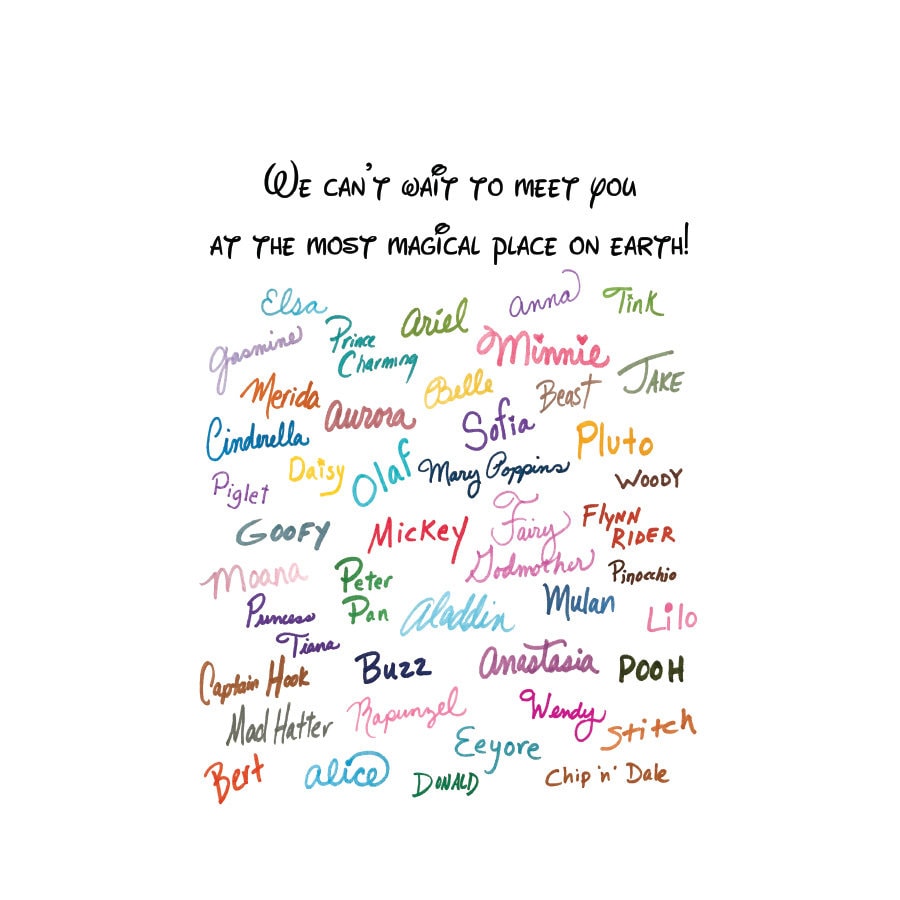 We can't wait to meet you
at the most magical place on earth!
Elsa Ariel Anna Tink
Jasmine Prince Charming Minnie
Merida Aurora Belle Beast Jake
Cinderella Sofia Pluto
Piglet Daisy Olaf Mary Poppins Woody
Goofy Mickey Fairy Godmother Flynn Rider
Moana Peter Pan Pinocchio
Princess Tiana Aladdin Mulan Lilo
Captain Hook Buzz Anastasia Pooh
Mad Hatter Rapunzel Wendy Stitch
Eeyore
Bert Alice Donald Chip 'n' Dale